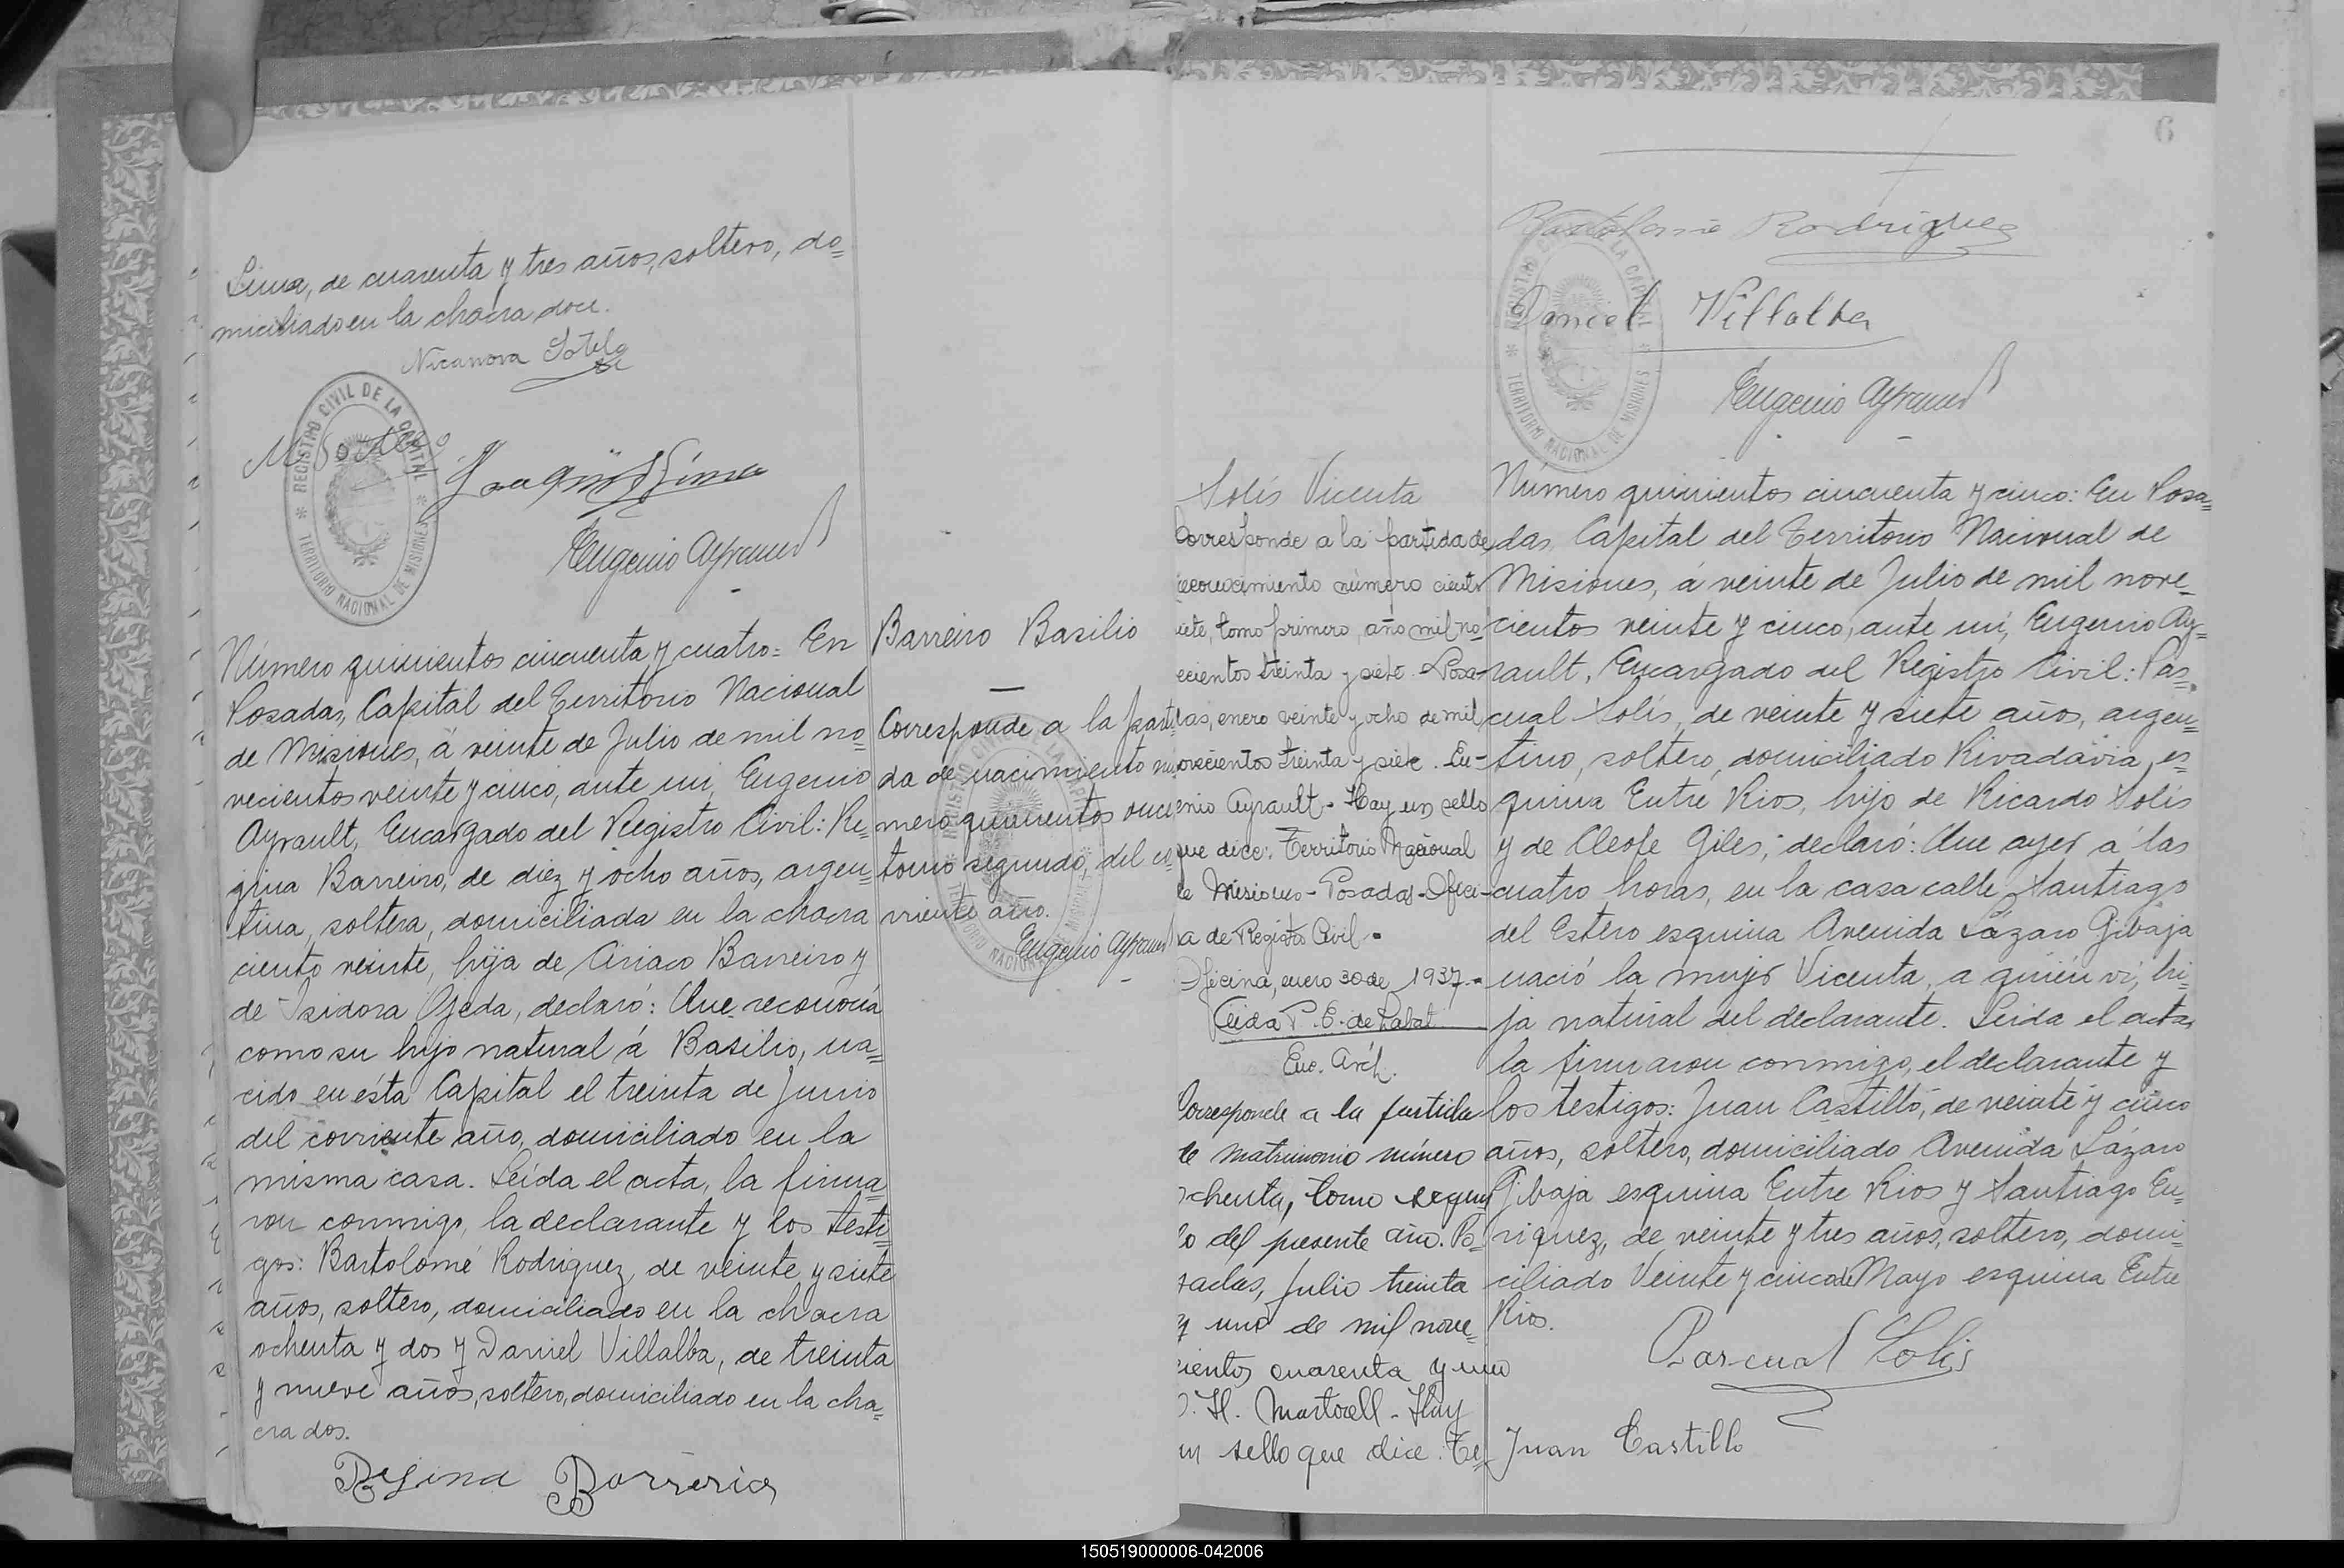 Lima, de cuarenta y tres años, soltero, do=
miciliado en la chacra doce.
Nicanora Sotelo
REGISTRO CIVIL DE LA CAPITAL
TERRITORIO NACIONAL DE MISIONES
Joaquin Lima
Eugenio Ayrault
Número quinientos cincuenta y cuatro= En
Posadas, Capital del Territorio Nacional
de Misiones, á veinte de Julio de mil no=
vecientos veinte y cinco, ante mi, Eugenio
Ayrault, Encargado del Registro Civil: Re=
gina Barreiro, de diez y ocho años, argen=
tina, soltera, domiciliada en la chacra
ciento veinte, hija de Ciriaco Barreiro y
de Isidora Ojeda, declaró: Que reconocía
como su hijo natural á Basilio, na=
cido en ésta Capital el treinta de Junio
del corriente año, domiciliado en la
misma casa. Leída el acta, la firma=
ron conmigo, la declarante y los testi=
gos: Bartolomé Rodriguez, de veinte y siete
años, soltero, domiciliado en la chacra
ochenta y dos y Daniel Villalba, de treinta
y nueve años, soltero, domiciliado en la cha=
cra dos.
Regina Barreria
Barreiro Basilio
Corresponde a la parti
da de nacimiento nú
mero quinientos once
tomo segundo, del co=
rriente año.
Eugenio Ayrault
6
Bartolomé Rodriguez
REGISTRO CIVIL DE LA CAPITAL
TERRITORIO NACIONAL DE MISIONES
Daniel Villalba
Eugenio Ayrault
Solís Vicenta
Corresponde a la partida de
reconocimiento número ciento
siete, tomo primero, año mil no-
vecientos treinta y siete. Posa-
das, enero veinte y ocho de mil
novecientos treinta y siete. Eu-
genio Ayrault.- Hay un sello
que dice: Territorio Nacional
de Misiones- Posadas- Ofici-
na de Registro Civil.-
Oficina, enero 30 de 1937.-
Enc. Arch.
Corresponde a la partida
de matrimonio número
ochenta, tomo segun
do del presente año. Po=
sadas, Julio treinta
y uno de mil nove=
cientos cuarenta y uno
H. Martorell - Hay
un sello que dice: Te=
Número quinientos cincuenta y cinco: En Posa=
das, Capital del Territorio Nacional de
Misiones, á veinte de Julio de mil nove=
cientos veinte y cinco, ante mi, Eugenio Ay=
rault, Encargado del Registro Civil: Pas=
cual Solís, de veinte y siete años, argen=
tino, soltero, domiciliado Rivadavia, es=
quina Entre Rios, hijo de Ricardo Solís
y de Cleofe Giles, declaró: Que ayer á las
cuatro horas, en la casa calle Santiago
del Estero esquina Avenida Lázaro Gibaja
nació la mujer Vicenta, a quién ví, hi=
ja natural del declarante. Leída el acta,
la firmaron conmigo, el declarante y
los testigos: Juan Castillo, de veinte y cinco
años, soltero, domiciliado Avenida Lázaro
Gibaja esquina Entre Rios y Santiago En=
riquez, de veinte y tres años, soltero, domi=
ciliado Veinte y cinco de Mayo esquina Entre
Rios.
Pascual Solis
Juan Castillo
150519000006-042006